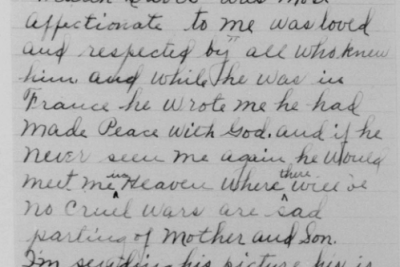 was more
affectionate to me was loved
and respected by all who knew
him and while he was in
France he wrote me he had
made Peace with God. and if he
never seen me again he would
meet me in Heaven where there will be
no Cruel wars are sad
parting of Mother and Son.
I'm sending his picture his is